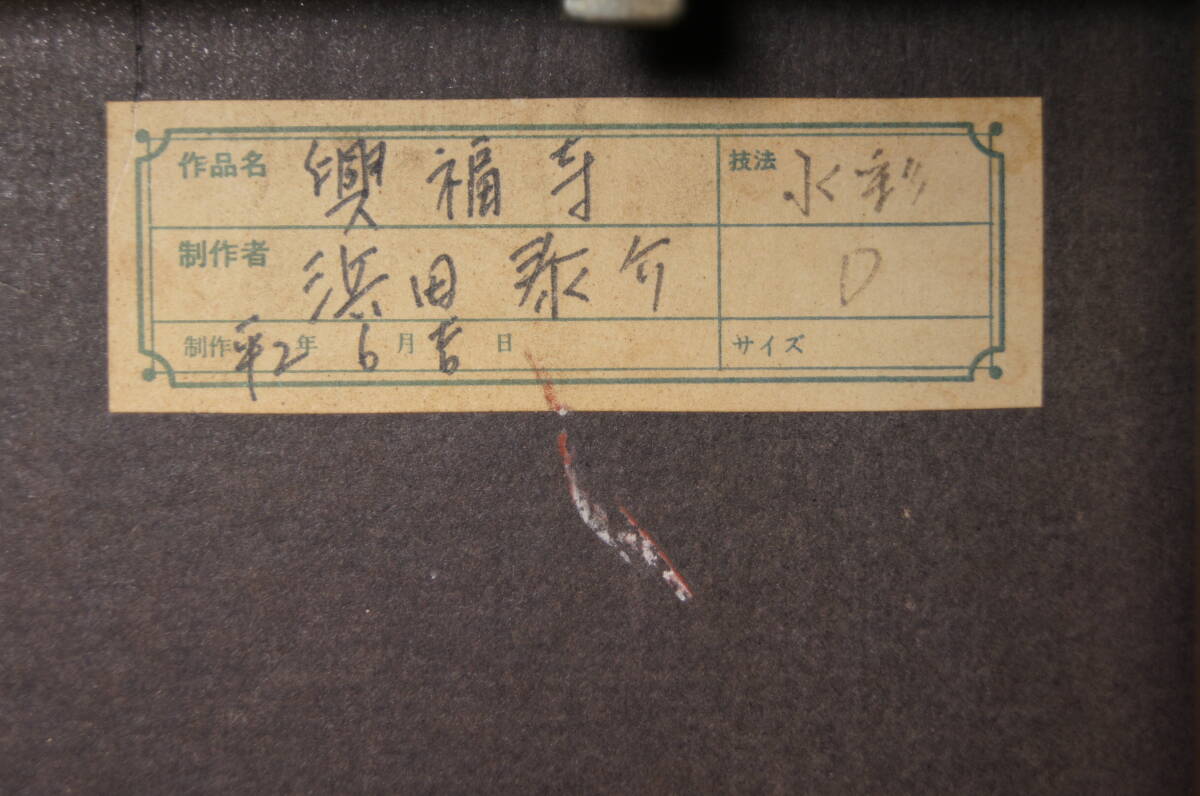 作品名 興福寺 技法 水彩
制作者 浜田泰介 D
制作 平2年 6月 吉日 サイズ